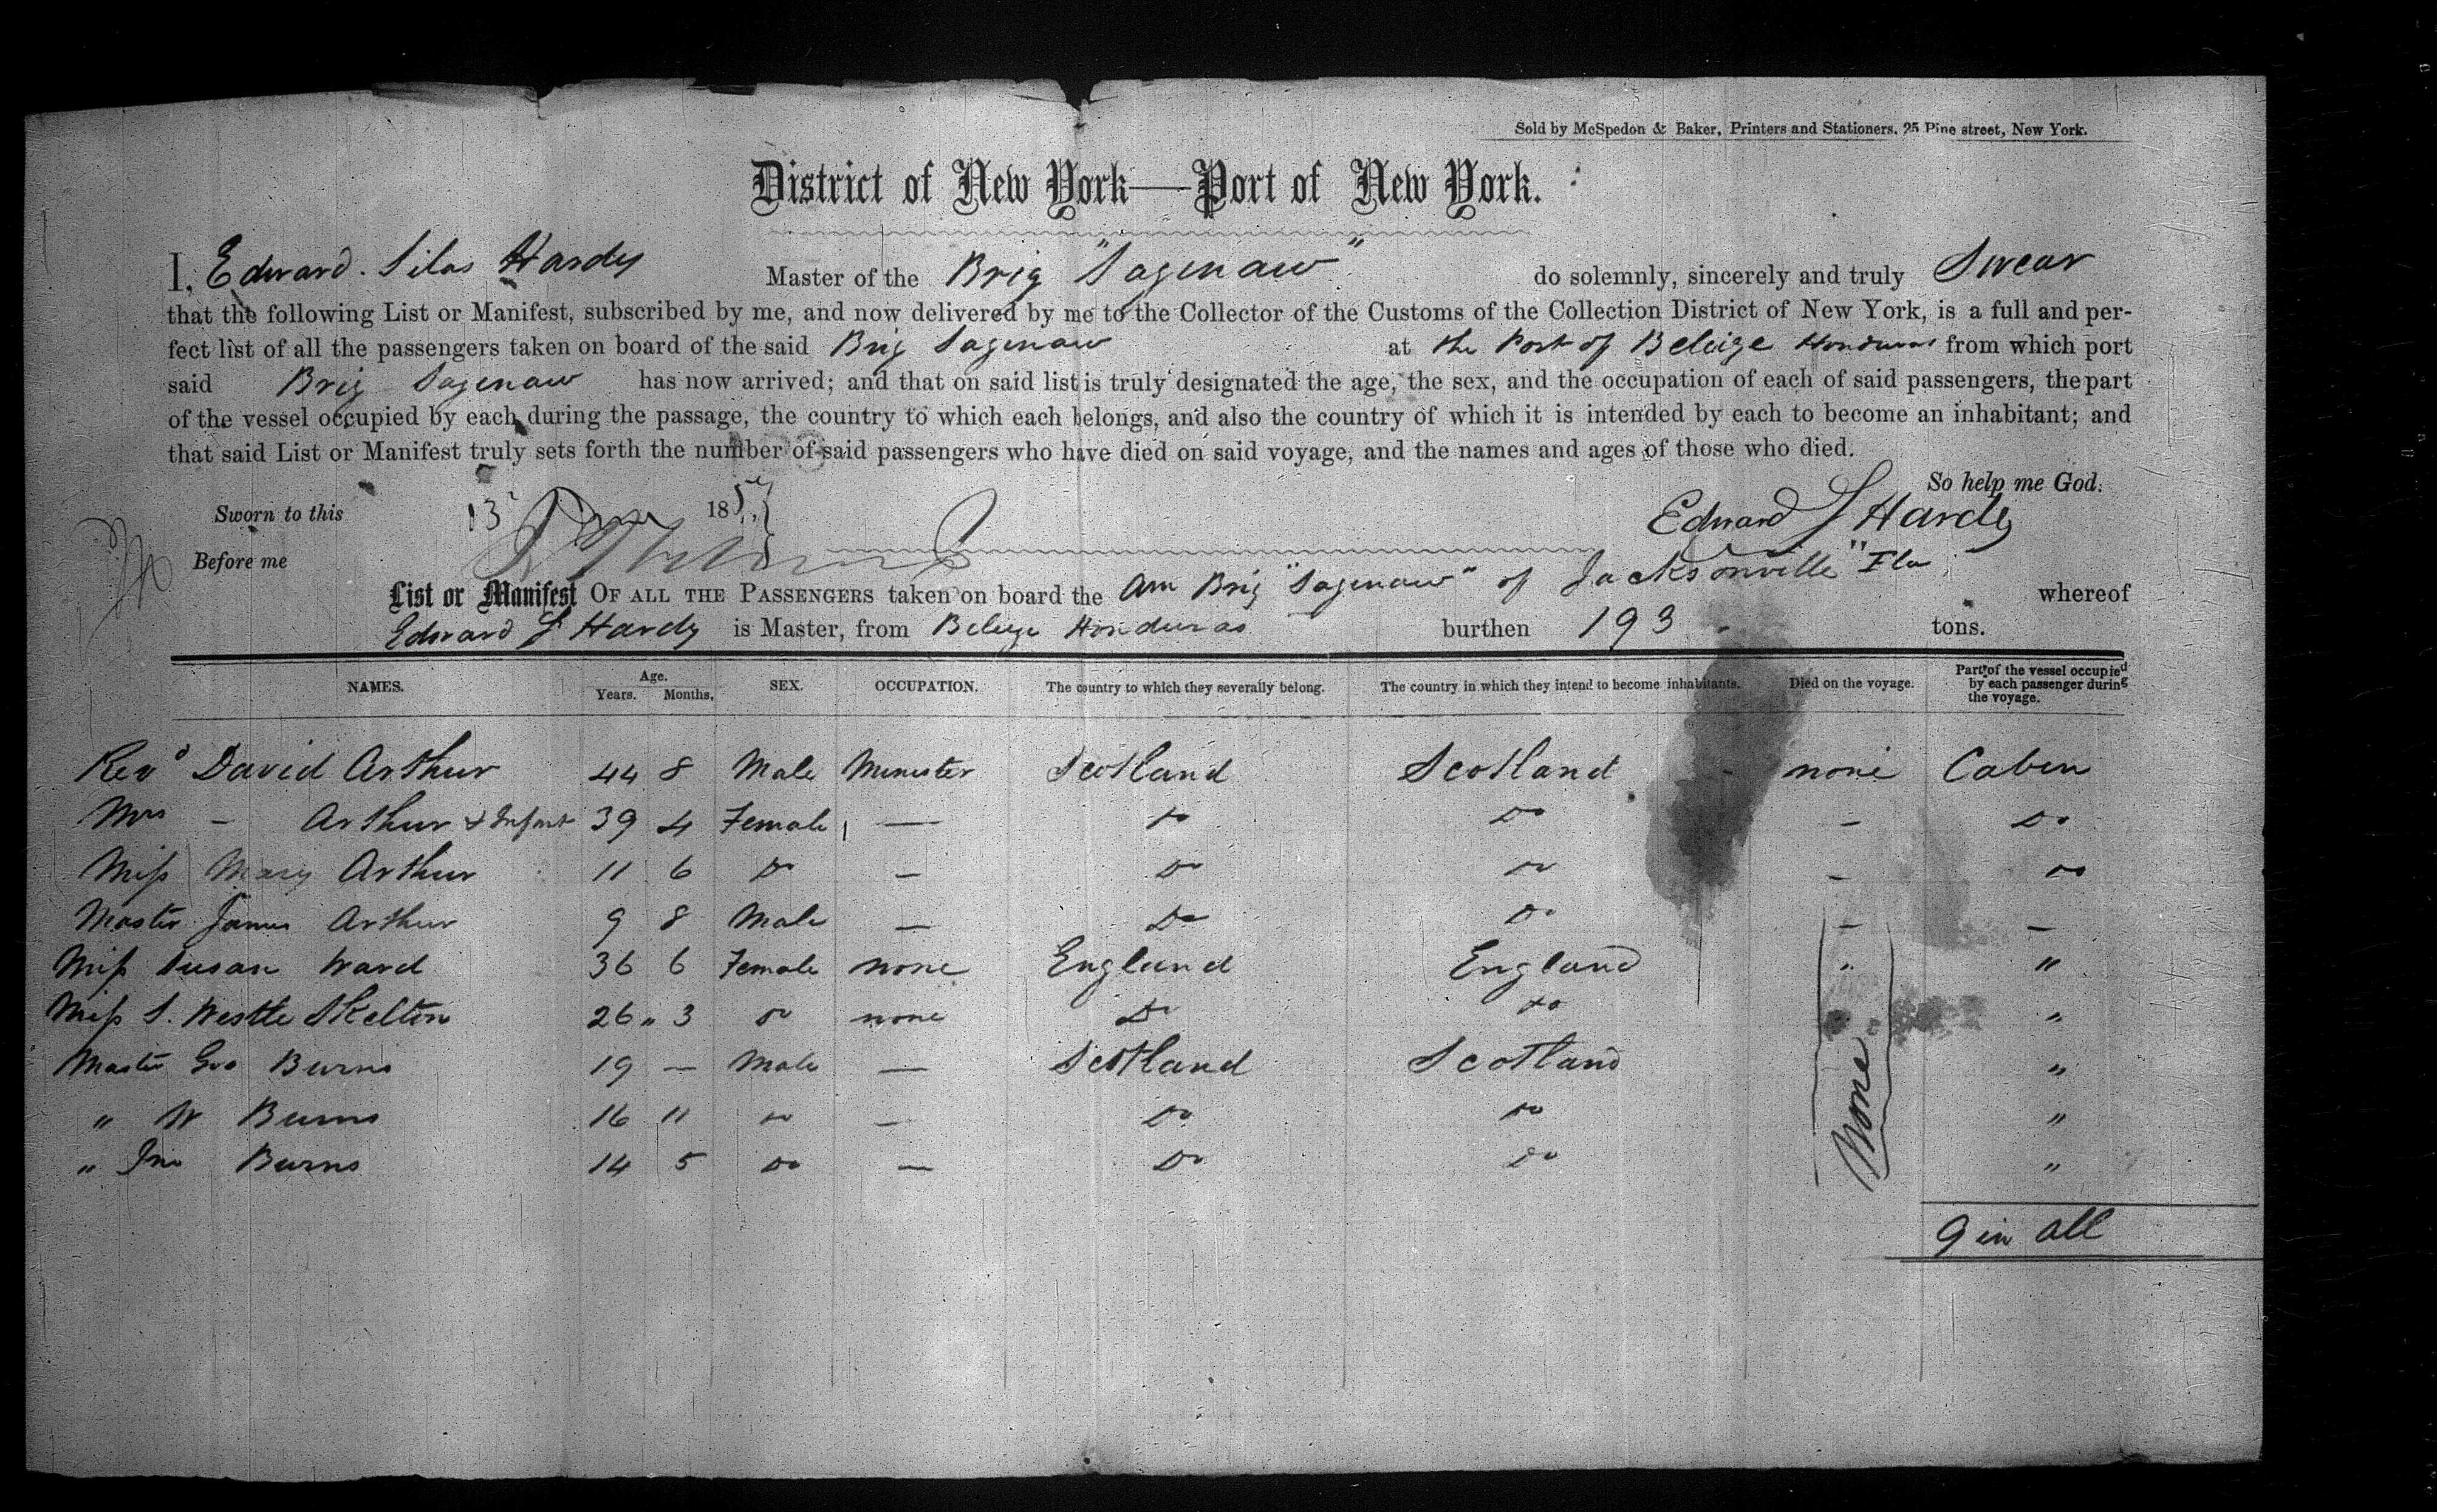 Sold by McSpedon & Baker, Printers and Stationers, 25 Pine street, New York.
District of New York—Port of New York.
I, Edward. Silas Hardy Master of the Brig "Sagenaw" do solemnly, sincerely and truly Swear
that the following List or Manifest, subscribed by me, and now delivered by me to the Collector of the Customs of the Collection District of New York, is a full and per-
fect list of all the passengers taken on board of the said Brig Sagenaw at the Port of Beleize Honduras from which port
said Brig Sagenaw has now arrived; and that on said list is truly designated the age, the sex, and the occupation of each of said passengers, the part
of the vessel occupied by each during the passage, the country to which each belongs, and also the country of which it is intended by each to become an inhabitant; and
that said List or Manifest truly sets forth the number of said passengers who have died on said voyage, and the names and ages of those who died.
So help me God.
Sworn to this 13 185
Edward S Hardy
Before me
List or Manifest OF ALL THE PASSENGERS taken on board the Am Brig "Sagenaw" of Jacksonville" Fla whereof
Edward S Hardy is Master, from Beleize Honduras burthen 193 tons.
NAMES. Age. Years. Months, SEX. OCCUPATION. The country to which they severally belong. The country in which they intend to become inhabitants. Died on the voyage. Part of the vessel occupied by each passenger during the voyage.
Revd David Arthur 44 8 Male Minister Scotland Scotland none Cabin
Mrs — Arthur & Infant 39 4 Female — Do Do — Do
Miss Mary Arthur 11 6 Do — Do Do — Do
Master James Arthur 9 8 Male — Do Do — —
Miss Susan Ward 36 6 Female none England England " "
Miss S. Westte Skelton 26 " 3 Do none Do Do "
Master Geo Burns 19 — Male — Scotland Scotland None "
" W Burns 16 11 Do — Do Do "
" Jno Burns 14 5 Do — Do Do "
9 in all